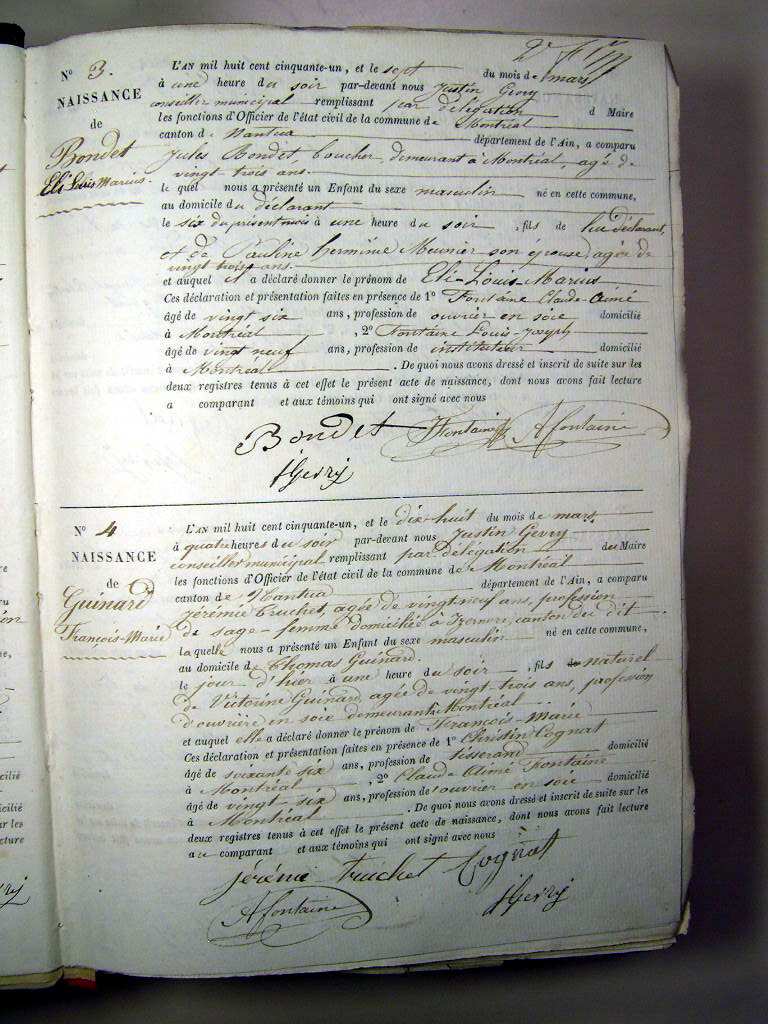 N° 3.
NAISSANCE
de
Bondet
Eli Louis Marius.
L'AN mil huit cent cinquante-un, et le sept du mois de mars
à une heure du soir par-devant nous Justin Gevry
conseiller municipal remplissant par délégation d Maire
les fonctions d'Officier de l'état civil de la commune de Montréal
canton de Nantua département de l'Ain, a comparu
Jules Bondet, boucher, demeurant à Montréal, agé de
vingt trois ans.
le quel nous a présenté un Enfant du sexe masculin né en cette commune,
au domicile du déclarant
le six du présent mois à une heure du soir, fils de lui déclarant,
et de Pauline herminie Meunier son épouse, agée de
vingt trois ans.
et auquel il a déclaré donner le prénom de Eli-Louis-Marius
Ces déclaration et présentation faites en présence de 1° Fontaine Claude-Aimé
âgé de vingt six ans, profession de ouvrier en soie domicilié
à Montréal, 2° Fontaine Louis-Joseph
âgé de vingt neuf ans, profession de instituteur domicilié
à Montréal. De quoi nous avons dressé et inscrit de suite sur les
deux registres tenus à cet effet le présent acte de naissance, dont nous avons fait lecture
a comparant et aux témoins qui ont signé avec nous
Bondet Fontaine Afontaine
JGevry
N° 4
NAISSANCE
de
Guinard
François-Marie
L'AN mil huit cent cinquante-un, et le dix-huit du mois de mars
à quatre heures du soir par-devant nous Justin Gevry
conseiller municipal remplissant par délégation du Maire
les fonctions d'Officier de l'état civil de la commune de Montréal
canton de Nantua département de l'Ain, a comparu
Jérémie Truchet, agée de vingt-neuf ans, profession
de sage-femme domiciliée à Izernore, canton du dit
la quelle nous a présenté un Enfant du sexe masculin né en cette commune,
au domicile de Thomas Guinard.
le jour d'hier à une heure du soir, fils naturel
de Victorine Guinard, agée de vingt trois ans, profession
d'ouvrière en soie demeurant à Montréal
et auquel elle a déclaré donner le prénom de François-Marie
Ces déclaration et présentation faites en présence de 1° Christin Cognat
âgé de soixante six ans, profession de tisserand domicilié
à Montréal, 2° Claude Aimé Fontaine
âgé de vingt-six ans, profession d'ouvrier en soie domicilié
à Montréal. De quoi nous avons dressé et inscrit de suite sur les
deux registres tenus à cet effet le présent acte de naissance, dont nous avons fait lecture
au comparant et aux témoins qui ont signé avec nous
jérémie truchet Cognat
Afontaine JGevry